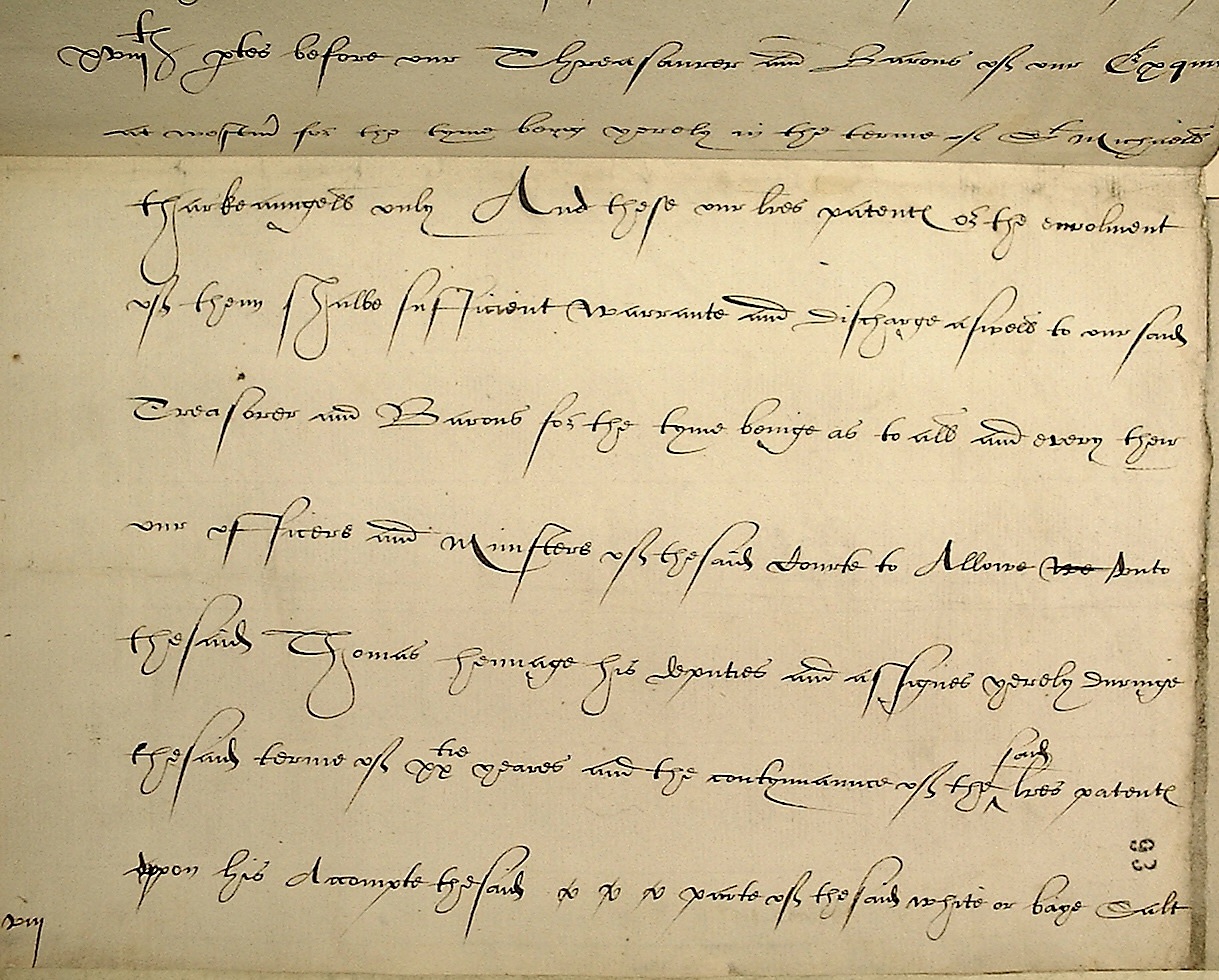 xviijth ptes before our Threasaurer and Barons of our Exqui
at westm for the tyme being yerely in the terme of St Michaells
tharkeaungells only And these our lres patent or the enrolment
of them shalbe sufficient warrante and discharge aswell to our said
Treasorer and Barons for the tyme beinge as to all and every their
our officers and Ministers of thesaid Courte to Allowe we unto
thesaid Thomas hennage his deputies and assignes yerely duringe
thesaid terme of xxtie yeares and the contynuaunce of the said lres patent
uppon his Accompte thesaid x x x parte of thesaid white or baye Salt
93
viij